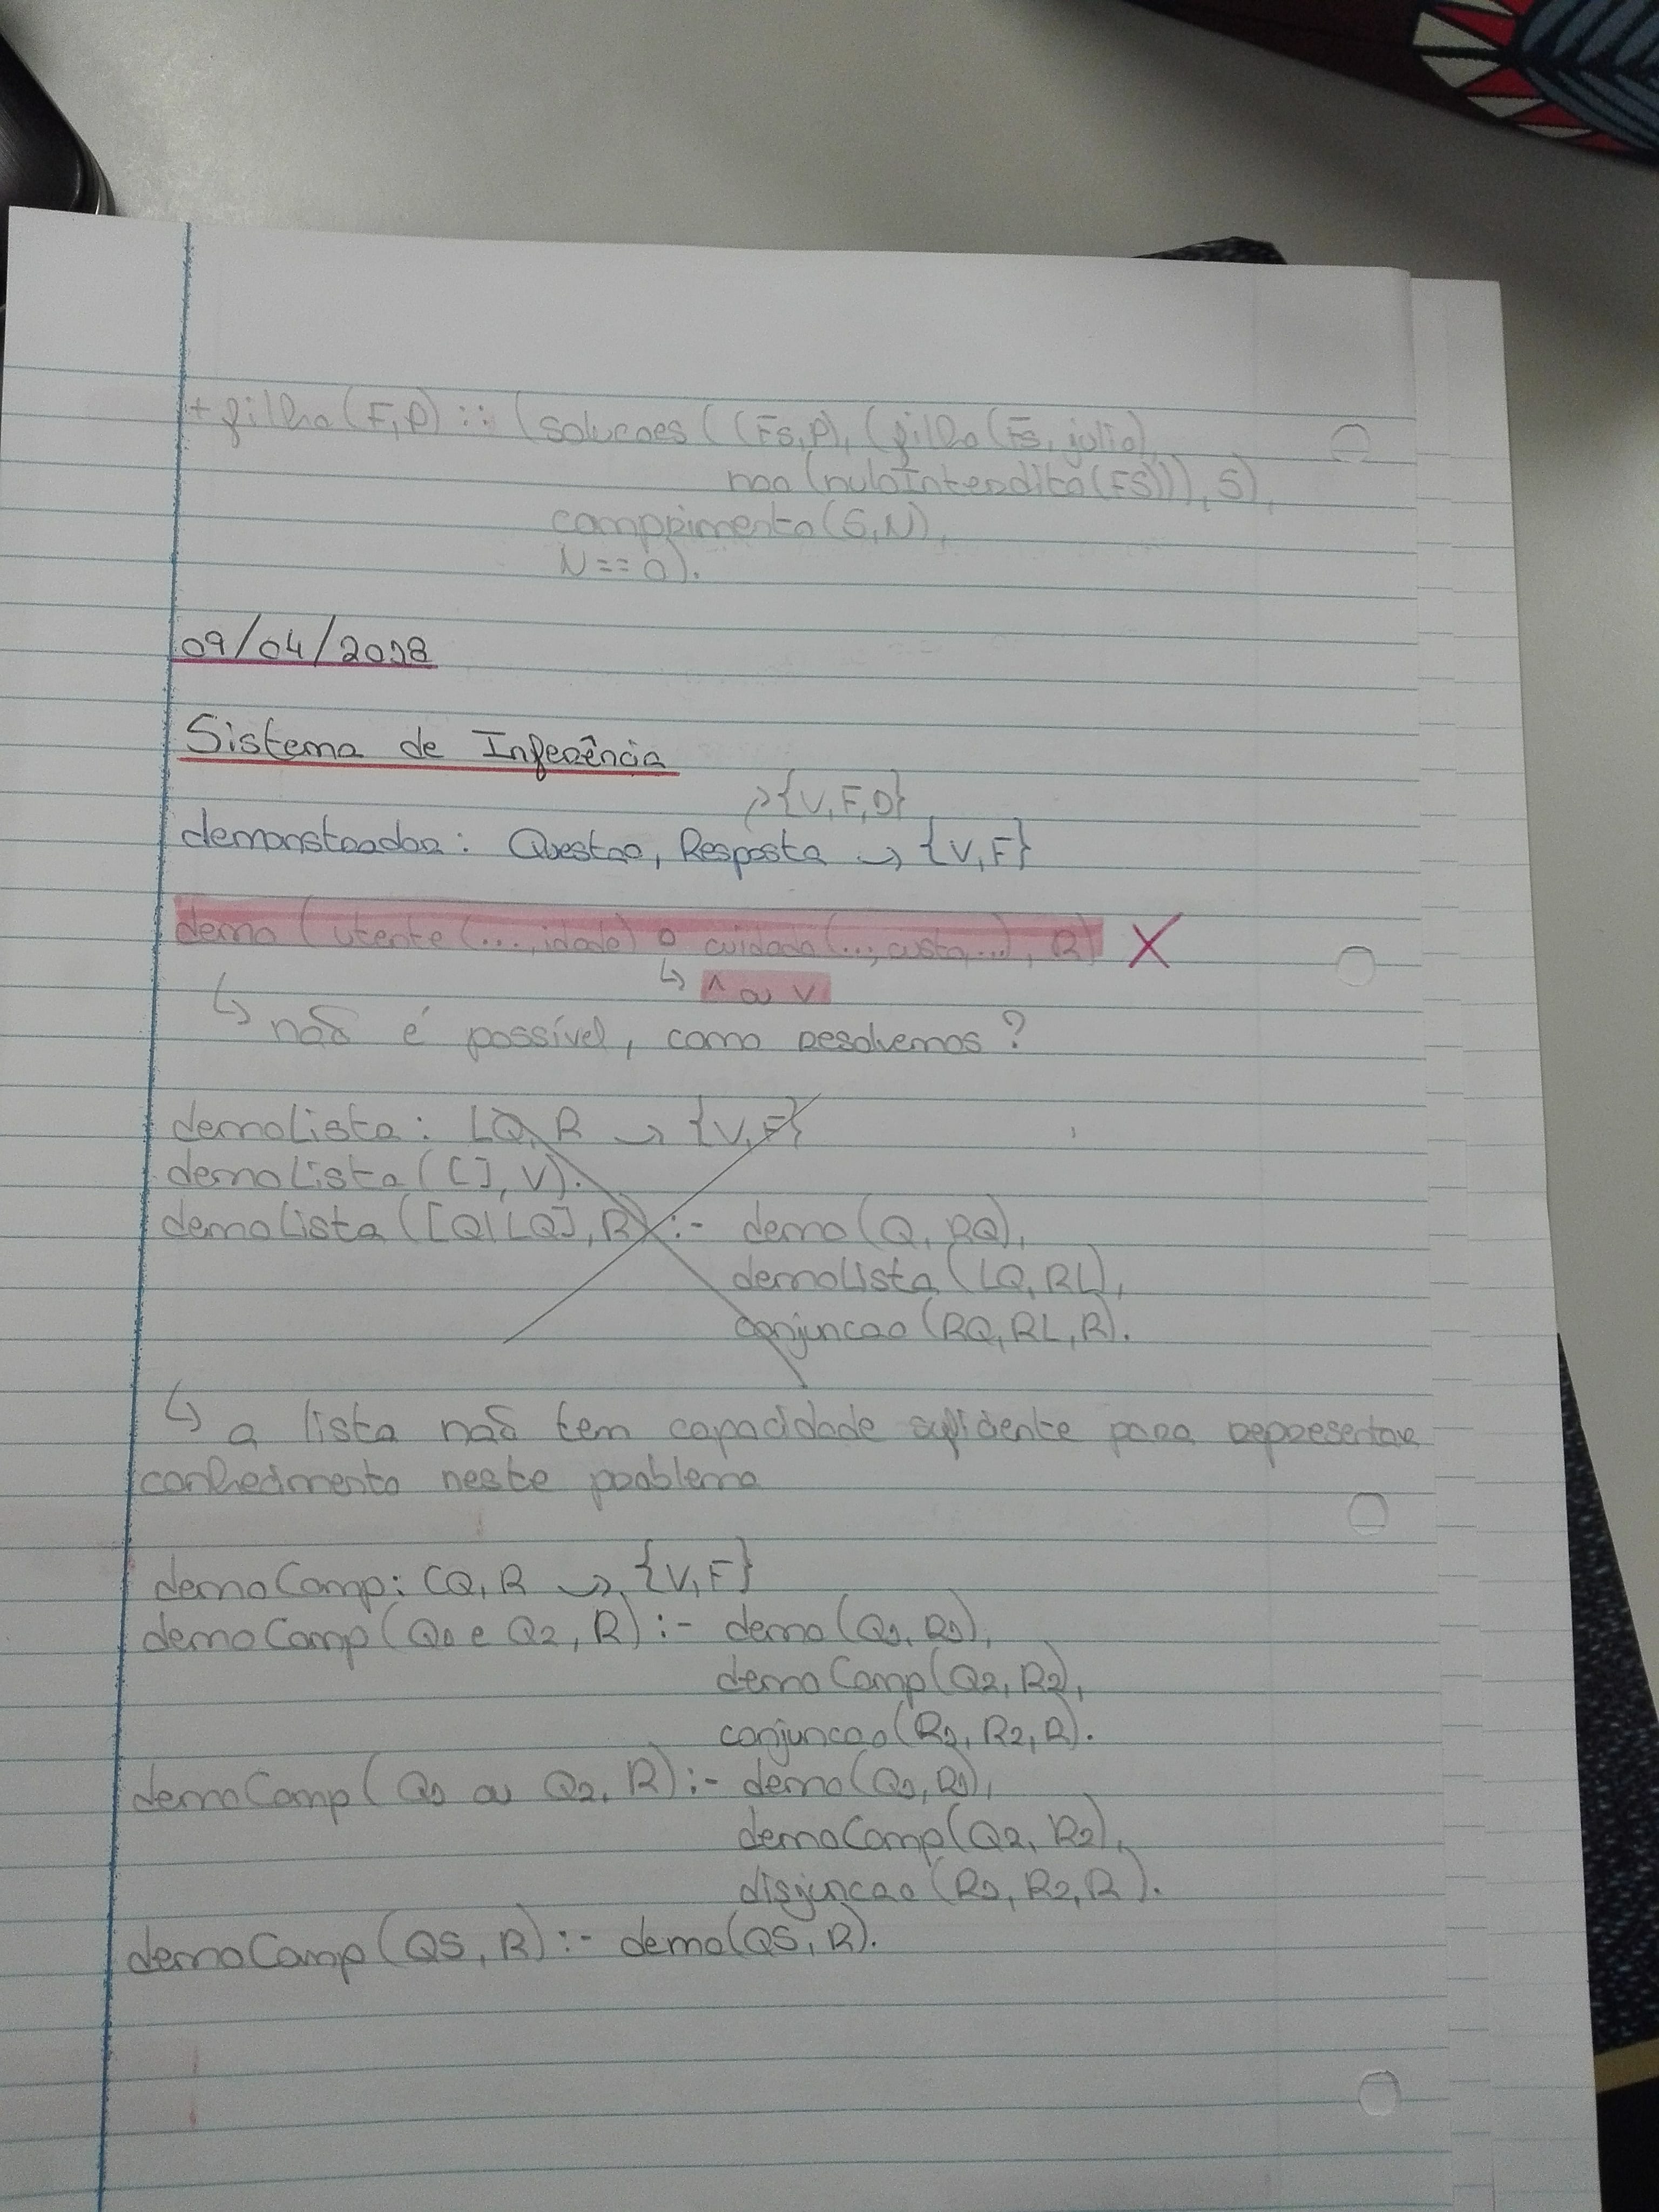 +filho(F,P) :: (solucoes((Fs,P),(filho(Fs,julio),
nao(nuloInterdito(FS))),S),
comprimento(S,N),
N==0).
09/04/2018
Sistema de Inferência
↗{V,F,D}
demonstrador: Questao, Resposta → {V,F}
demo(utente(...,idade) o cuidado(...,custo,...), R) X
↳ ∧ ou ∨
↳ não é possível, como resolvemos?
demoLista: LQ,R → {V,F}
demoLista([],V).
demoLista([Q|LQ],R) :- demo(Q,RQ),
demoLista(LQ,RL),
conjuncao(RQ,RL,R).
↳ a lista não tem capacidade suficiente para representar
conhecimento neste problema
demoComp: CQ,R → {V,F}
demoComp(Q1 e Q2, R) :- demo(Q1,R1),
demoComp(Q2,R2),
conjuncao(R1,R2,R).
demoComp(Q1 ou Q2, R) :- demo(Q1,R1),
demoComp(Q2,R2),
disjuncao(R1,R2,R).
demoComp(QS,R) :- demo(QS,R).